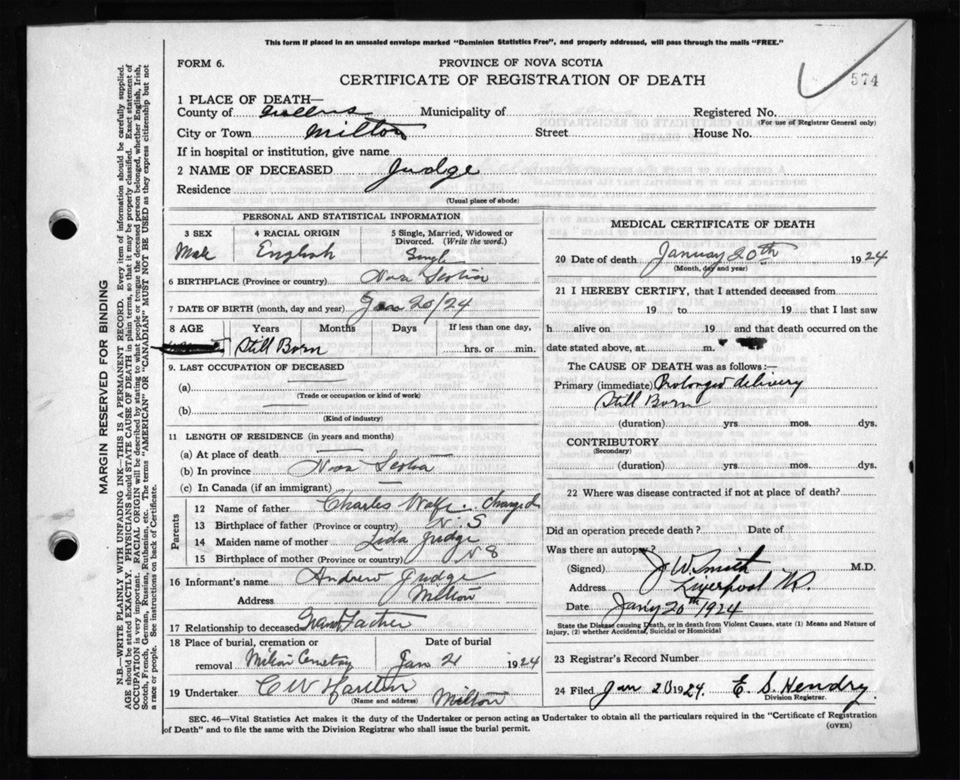 This form if placed in an unsealed envelope marked "Dominion Statistics Free", and properly addressed, will pass through the mails "FREE."
FORM 6.
PROVINCE OF NOVA SCOTIA
CERTIFICATE OF REGISTRATION OF DEATH
574
1 PLACE OF DEATH—
County of Queens Municipality of Registered No.
(For use of Registrar General only)
City or Town Milton Street House No.
If in hospital or institution, give name
2 NAME OF DECEASED Judge
Residence
(Usual place of abode)
PERSONAL AND STATISTICAL INFORMATION
3 SEX 4 RACIAL ORIGIN 5 Single, Married, Widowed or Divorced. (Write the word.)
Male English Single
6 BIRTHPLACE (Province or country) Nova Scotia
7 DATE OF BIRTH (month, day and year) Jan 20/24
8 AGE Years Months Days If less than one day,
Still Born hrs. or min.
9. LAST OCCUPATION OF DECEASED
(a)
(Trade or occupation or kind of work)
(b)
(Kind of industry)
11 LENGTH OF RESIDENCE (in years and months)
(a) At place of death
(b) In province Nova Scotia
(c) In Canada (if an immigrant)
Parents
12 Name of father Charles Wolfe charged
13 Birthplace of father (Province or country) N.S
14 Maiden name of mother Leda Judge
15 Birthplace of mother (Province or country) N S
16 Informant's name Andrew Judge
Address Milton
17 Relationship to deceased Grand Father
18 Place of burial, cremation or removal Date of burial
Milton Cemetery Jan 21 1924
19 Undertaker C W Harlow Milton
(Name and address)
MEDICAL CERTIFICATE OF DEATH
20 Date of death January 20th 1924
(Month, day and year)
21 I HEREBY CERTIFY, that I attended deceased from
19 to 19 that I last saw
h alive on 19 and that death occurred on the
date stated above, at m.
The CAUSE OF DEATH was as follows:—
Primary (immediate) Prolonged delivery
Still Born
(duration) yrs. mos. dys.
CONTRIBUTORY
(Secondary)
(duration) yrs. mos. dys.
22 Where was disease contracted if not at place of death?
Did an operation precede death? Date of
Was there an autopsy?
(Signed) J W Smith M.D.
Address Liverpool N.S.
Date Jan'y 20th 1924
State the Disease causing Death, or in death from Violent Causes, state (1) Means and Nature of Injury, (2) whether Accidental, Suicidal or Homicidal
23 Registrar's Record Number
24 Filed Jan 20 1924. E. S. Hendry.
Division Registrar.
SEC. 46—Vital Statistics Act makes it the duty of the Undertaker or person acting as Undertaker to obtain all the particulars required in the "Certificate of Registration
of Death" and to file the same with the Division Registrar who shall issue the burial permit. (OVER)
MARGIN RESERVED FOR BINDING
N.B.—WRITE PLAINLY WITH UNFADING INK—THIS IS A PERMANENT RECORD. Every item of information should be carefully supplied.
AGE should be stated EXACTLY. PHYSICIANS should STATE CAUSE OF DEATH in plain terms, so that it may be properly classified. Exact statement of
OCCUPATION is very important. RACIAL ORIGIN will be described by stating to what people or tongue the deceased person belonged, whether English, Irish,
Scotch, French, German, Russian, Ruthenian, etc. The terms "AMERICAN" OR "CANADIAN" MUST NOT BE USED as they express citizenship but not
a race or people. See instructions on back of Certificate.